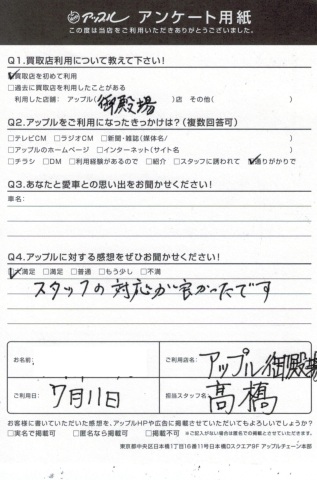 アップル アンケート用紙
この度は当店をご利用いただきありがとうございました。
Q1.買取店利用について教えて下さい!
☑買取店を初めて利用
□過去に買取店を利用したことがある
利用した店舗: アップル(御殿場)店 その他( )
Q2.アップルをご利用になったきっかけは?(複数回答可)
□テレビCM □ラジオCM □新聞・雑誌(媒体名/ )
□アップルのホームページ □インターネット(サイト名 )
□チラシ □DM □利用経験があるので □紹介 □スタッフに誘われて ☑通りがかりで
Q3.あなたと愛車との思い出をお聞かせください!
車名:
Q4.アップルに対する感想をぜひお聞かせください!
☑大満足 □満足 □普通 □もう少し □不満
スタッフの対応が良かったです
お名前:
ご利用店名: アップル御殿場
ご利用日: 7月11日
担当スタッフ名: 高橋
お客様に書いていただいた感想を、アップルHPや広告に掲載させていただいてもよろしいでしょうか?
□実名で掲載可 □匿名なら掲載可 □掲載不可 ※ご記入がない場合は匿名での掲載とさせていただきます。
東京都中央区日本橋1丁目16番11号日本橋Dスクエア9F アップルチェーン本部